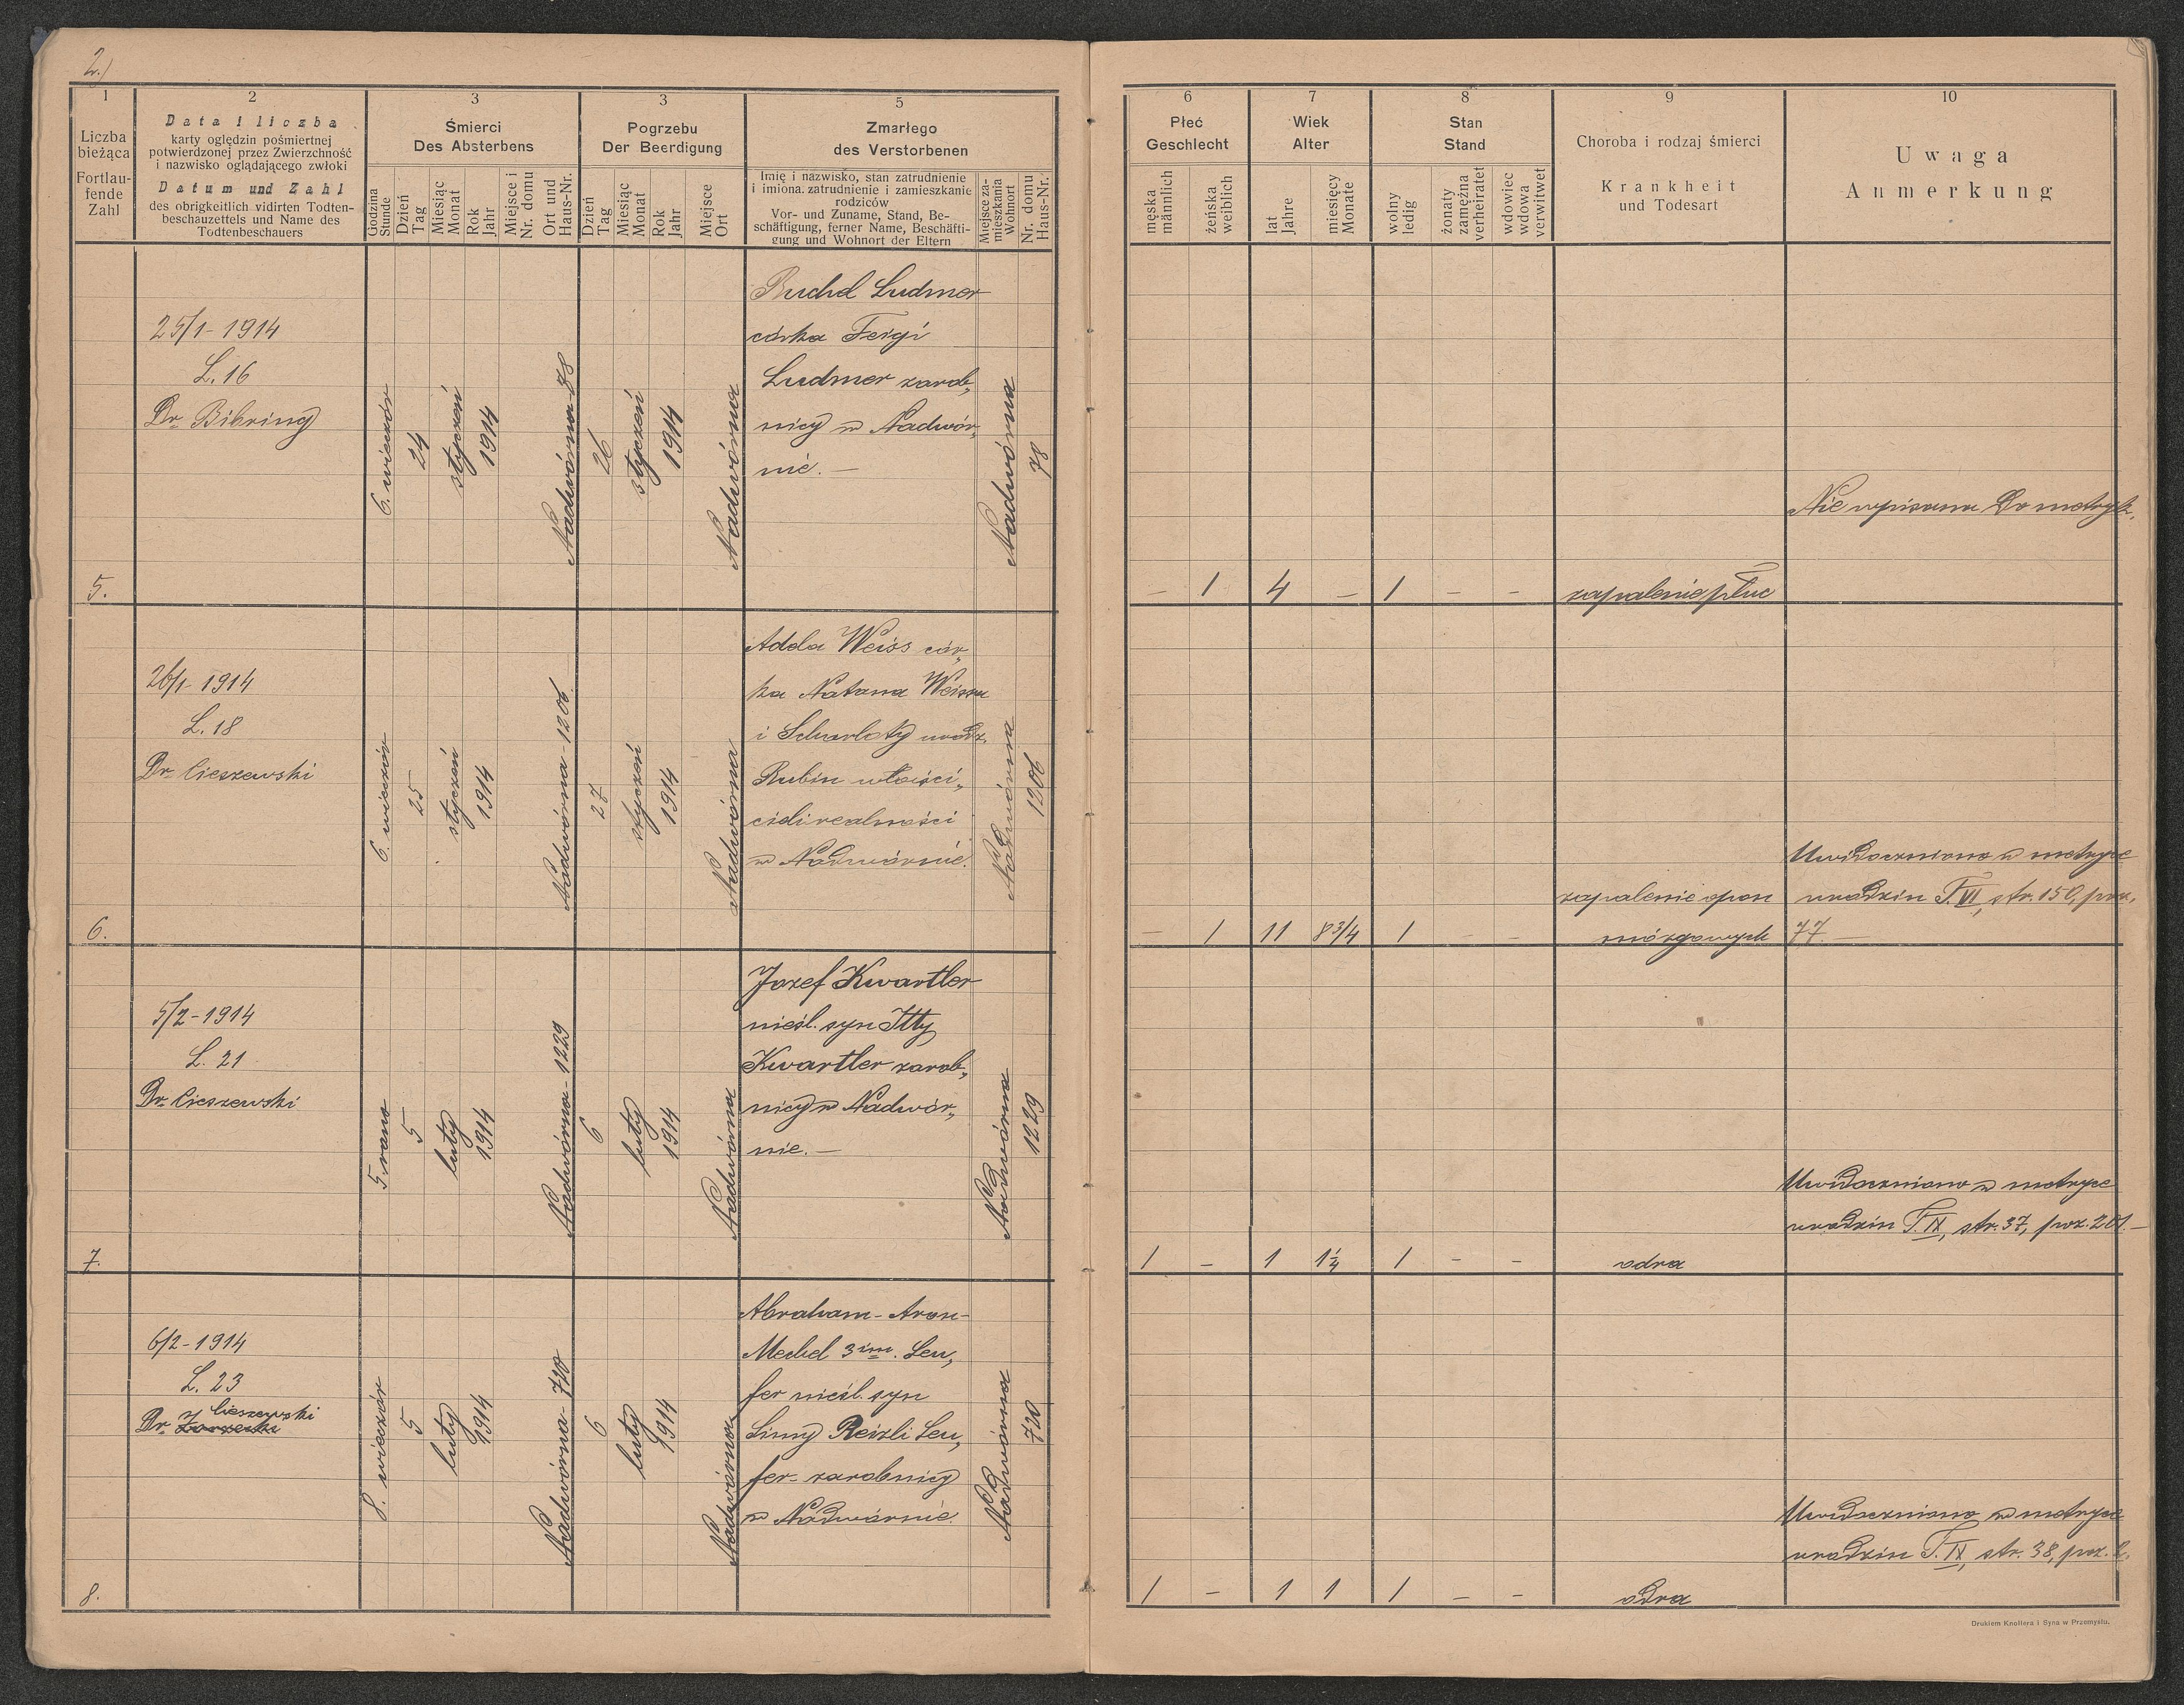 2.)
1
2
3
3
5
6
7
8
9
10
Liczba
bieżąca
Fortlau-
fende
Zahl
Data i liczba
karty oględzin pośmiertnej
potwierdzonej przez Zwierzchność
i nazwisko oglądającego zwłoki
Datum und Zahl
des obrigkeitlich vidirten Todten-
beschauzettels und Name des
Todtenbeschauers
Śmierci
Des Absterbens
Godzina
Stunde
Dzień
Tag
Miesiąc
Monat
Rok
Jahr
Miejsce i
Nr. domu
Ort und
Haus-Nr.
Pogrzebu
Der Beerdigung
Dzień
Tag
Miesiąc
Monat
Rok
Jahr
Miejsce
Ort
Zmarłego
des Verstorbenen
Imię i nazwisko, stan zatrudnienie
i imiona. zatrudnienie i zamieszkanie
rodziców
Vor- und Zuname, Stand, Be-
schäftigung, ferner Name, Beschäfti-
gung und Wohnort der Eltern
Miejsce za-
mieszkania
Wohnort
Nr. domu
Haus-Nr.
Płeć
Geschlecht
męska
männlich
żeńska
weiblich
Wiek
Alter
lat
Jahre
miesięcy
Monate
Stan
Stand
wolny
ledig
żonaty
zamężna
verheiratet
wdowiec
wdowa
verwitwet
Choroba i rodzaj śmierci
Krankheit
und Todesart
Uwaga
Anmerkung
5.
25/1 - 1914
L. 16
Dr. Bibring
6. wieczór
24
styczeń
1914
Nadwórna - 78
26
styczeń
1914
Nadwórna
Ruchel Ludmer
córka Feigi
Ludmer zarob„
nicy w Nadwór„
nie. —
Nadwórna
78
– 1 4 – 1 – –
zapalenie płuc
Nie wpisana do metryk.
6.
26/1 - 1914
L. 18
Dr. Cieszewski
6. wieczór
25
styczeń
1914
Nadwórna - 1206
27
styczeń
1914
Nadwórna
Adela Weiss cór„
ka Natana Weissa
i Scharloty urodz.
Rubin właści„
cieli realności
w Nadwórnie.
Nadwórna
1206
– 1 11 8 3/4 1 – –
zapalenie opon
mózgowych
Uwidoczniono w metryce
urodzin T. VI, str. 150, poz.
77. —
7.
5/2 - 1914
L. 21
Dr. Cieszewski
5. rano
5
luty
1914
Nadwórna - 1229
6
luty
1914
Nadwórna
Jozef Kwartler
nieśl. syn Itty
Kwartler zarob„
nicy w Nadwór„
nie. —
Nadwórna
1229
1 – 1 1 1/4 1 – –
odra
Uwidoczniono w metryce
urodzin T. IX, str. 37, poz. 201. —
8.
6/2 - 1914
L. 23
Cieszewski
Dr.
8. wieczór
5
luty
1914
Nadwórna - 720
6
luty
1914
Nadwórna
Abraham - Aron -
Mechel 3 im. Leu„
fer nieśl. syn
Simy Reizli Leu„
fer - zarobnicy
w Nadwórnie.
Nadwórna
720
1 – 1 1 1 – –
odra
Uwidoczniono w metryce
urodzin T. IX, str. 38, poz.
Drukiem Knollera i Syna w Przemyślu.